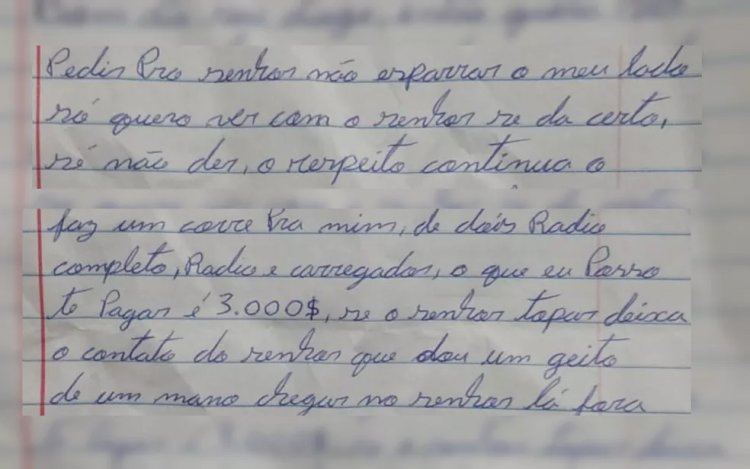 Pedir Pra senhor não esparrar o meu lado
só quero ver com o senhor se da certo,
sé não der, o respeito continua o
faz um corre Pra mim, de dois Radio
completo, Radio e carregador, o que eu Posso
te Pagar é 3.000$, se o senhor topar deixa
o contato do senhor que dou um geito
de um mano chegar no senhor lá fora